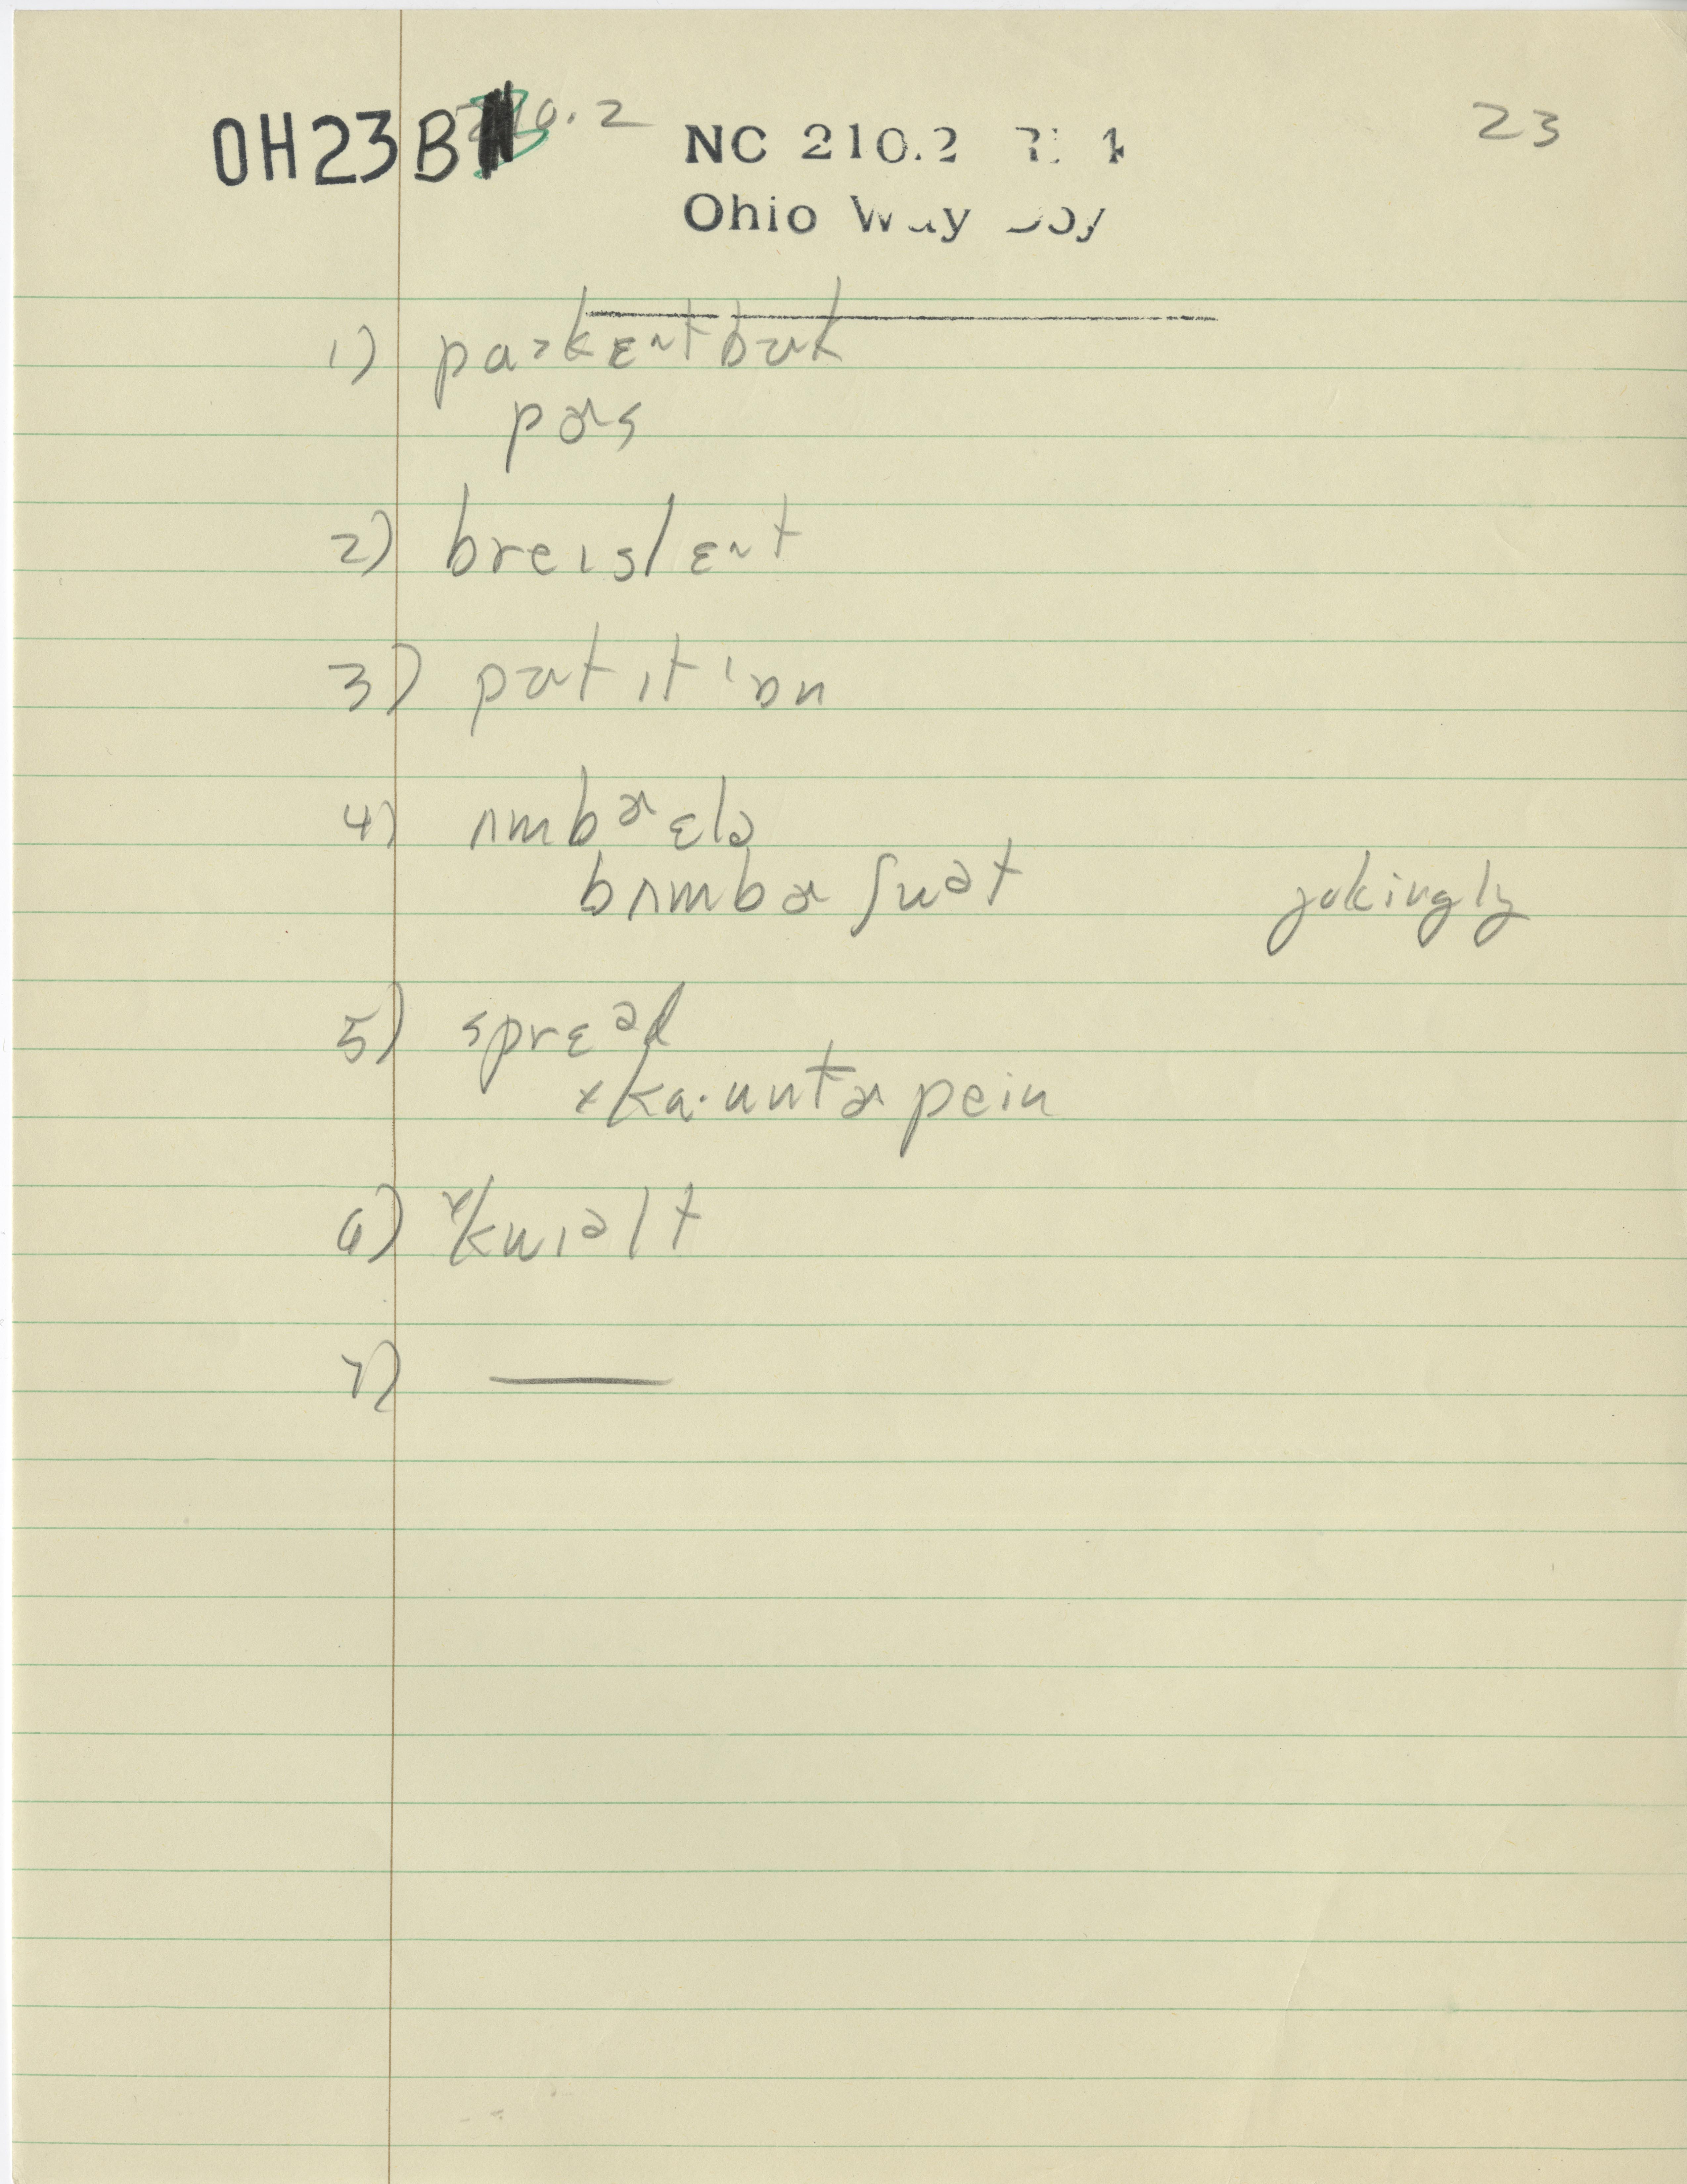 OH23B 210.2 NC 210.2 23
Ohio Way
1) paɔkɛ^tbɯk
pɚs
2) breɪslɛ^t
3) pɚtɪtɪɒn
4) ʌmbɚɛlə
bʌmbɚʃuət jokingly
5) sprɛəd
×ka·untɚpein
6) kwɪəlt
7) —